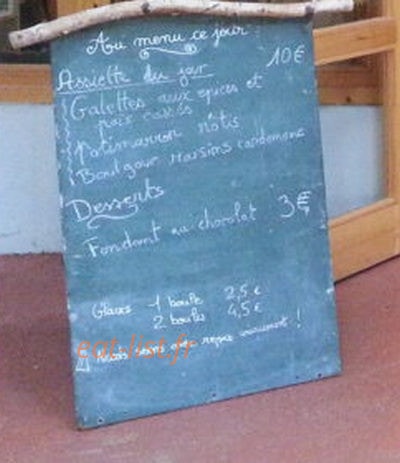 Au menu ce jour :
Assiette du jour 10€
Galettes aux épices et
pois cassés
Patimarron rôtis
Boulgour raisins cardamome
Desserts
Fondant au chocolat 3€
Glaces 1 boule 2,5€
2 boules 4,5€
repas uniquement !
eat-list.fr